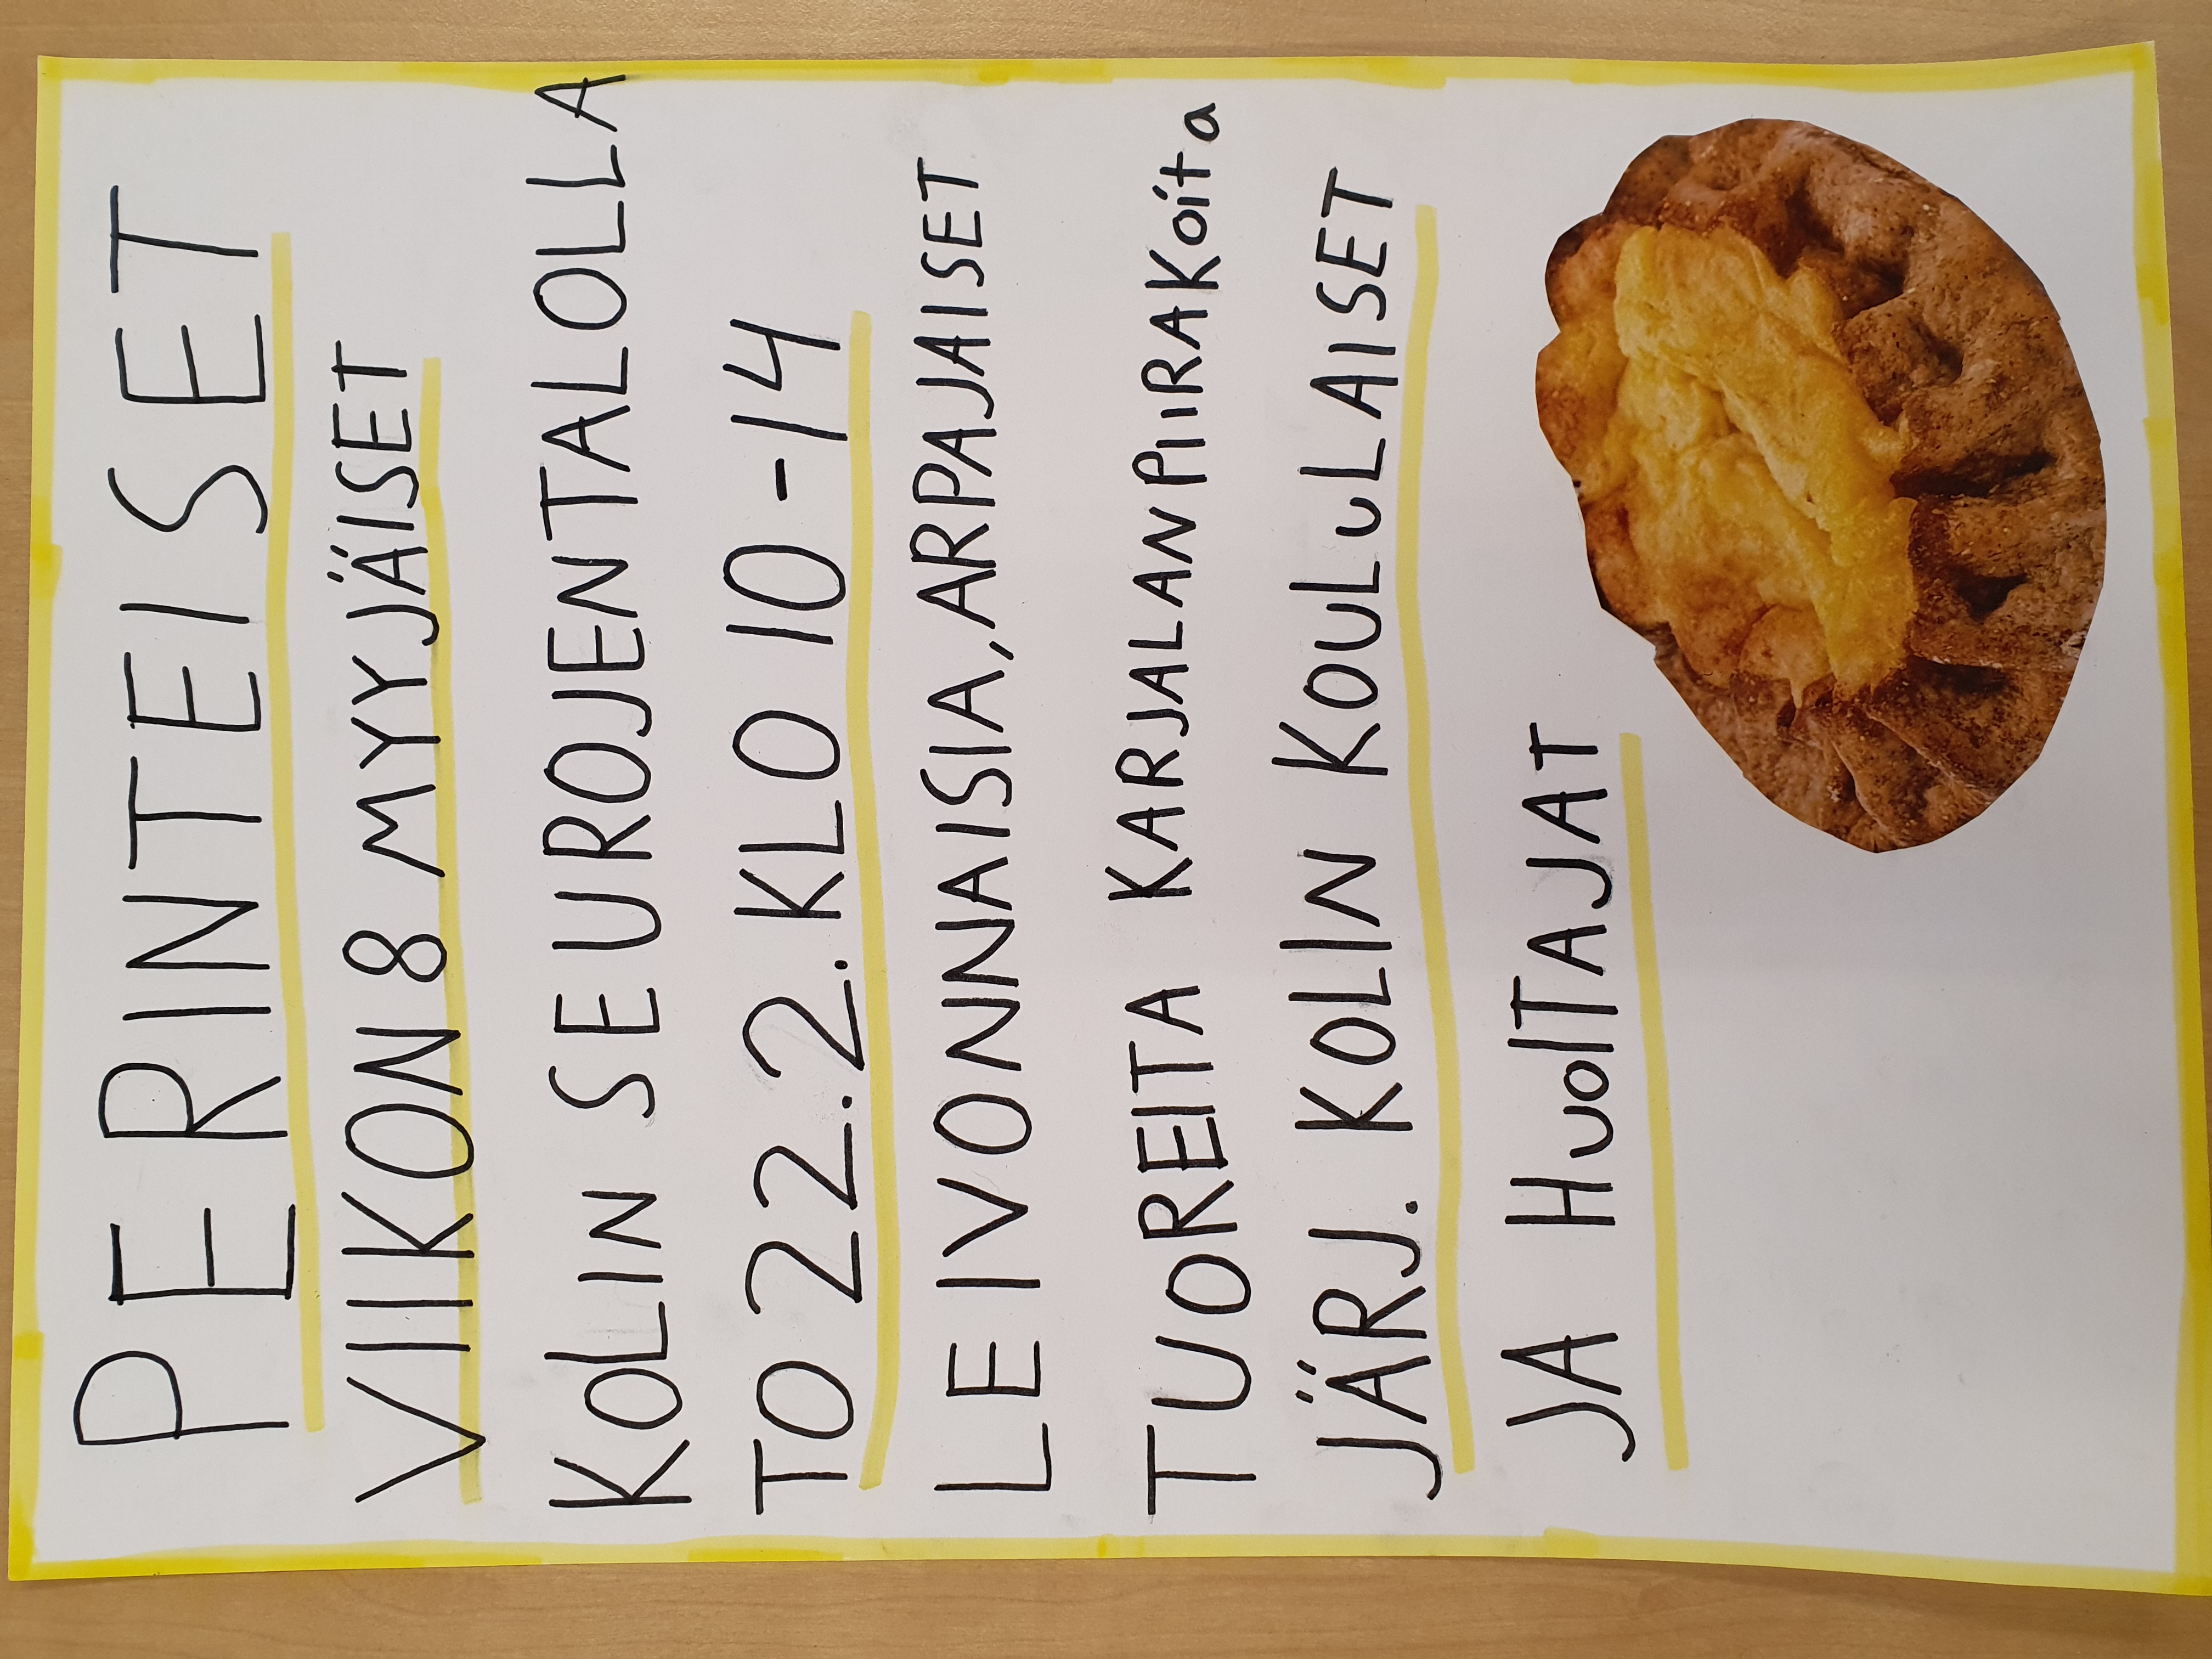 PERINTEISET
VIIKON 8 MYYJÄISET
KOLIN SEUROJENTALOLLA
TO 22.2. KLO 10-14
LEIVONNAISIA, ARPAJAISET
TUOREITA KARJALANPIIRAKOita
JÄRJ. KOLIN KOULULAISET
JA HUOlTAJAT